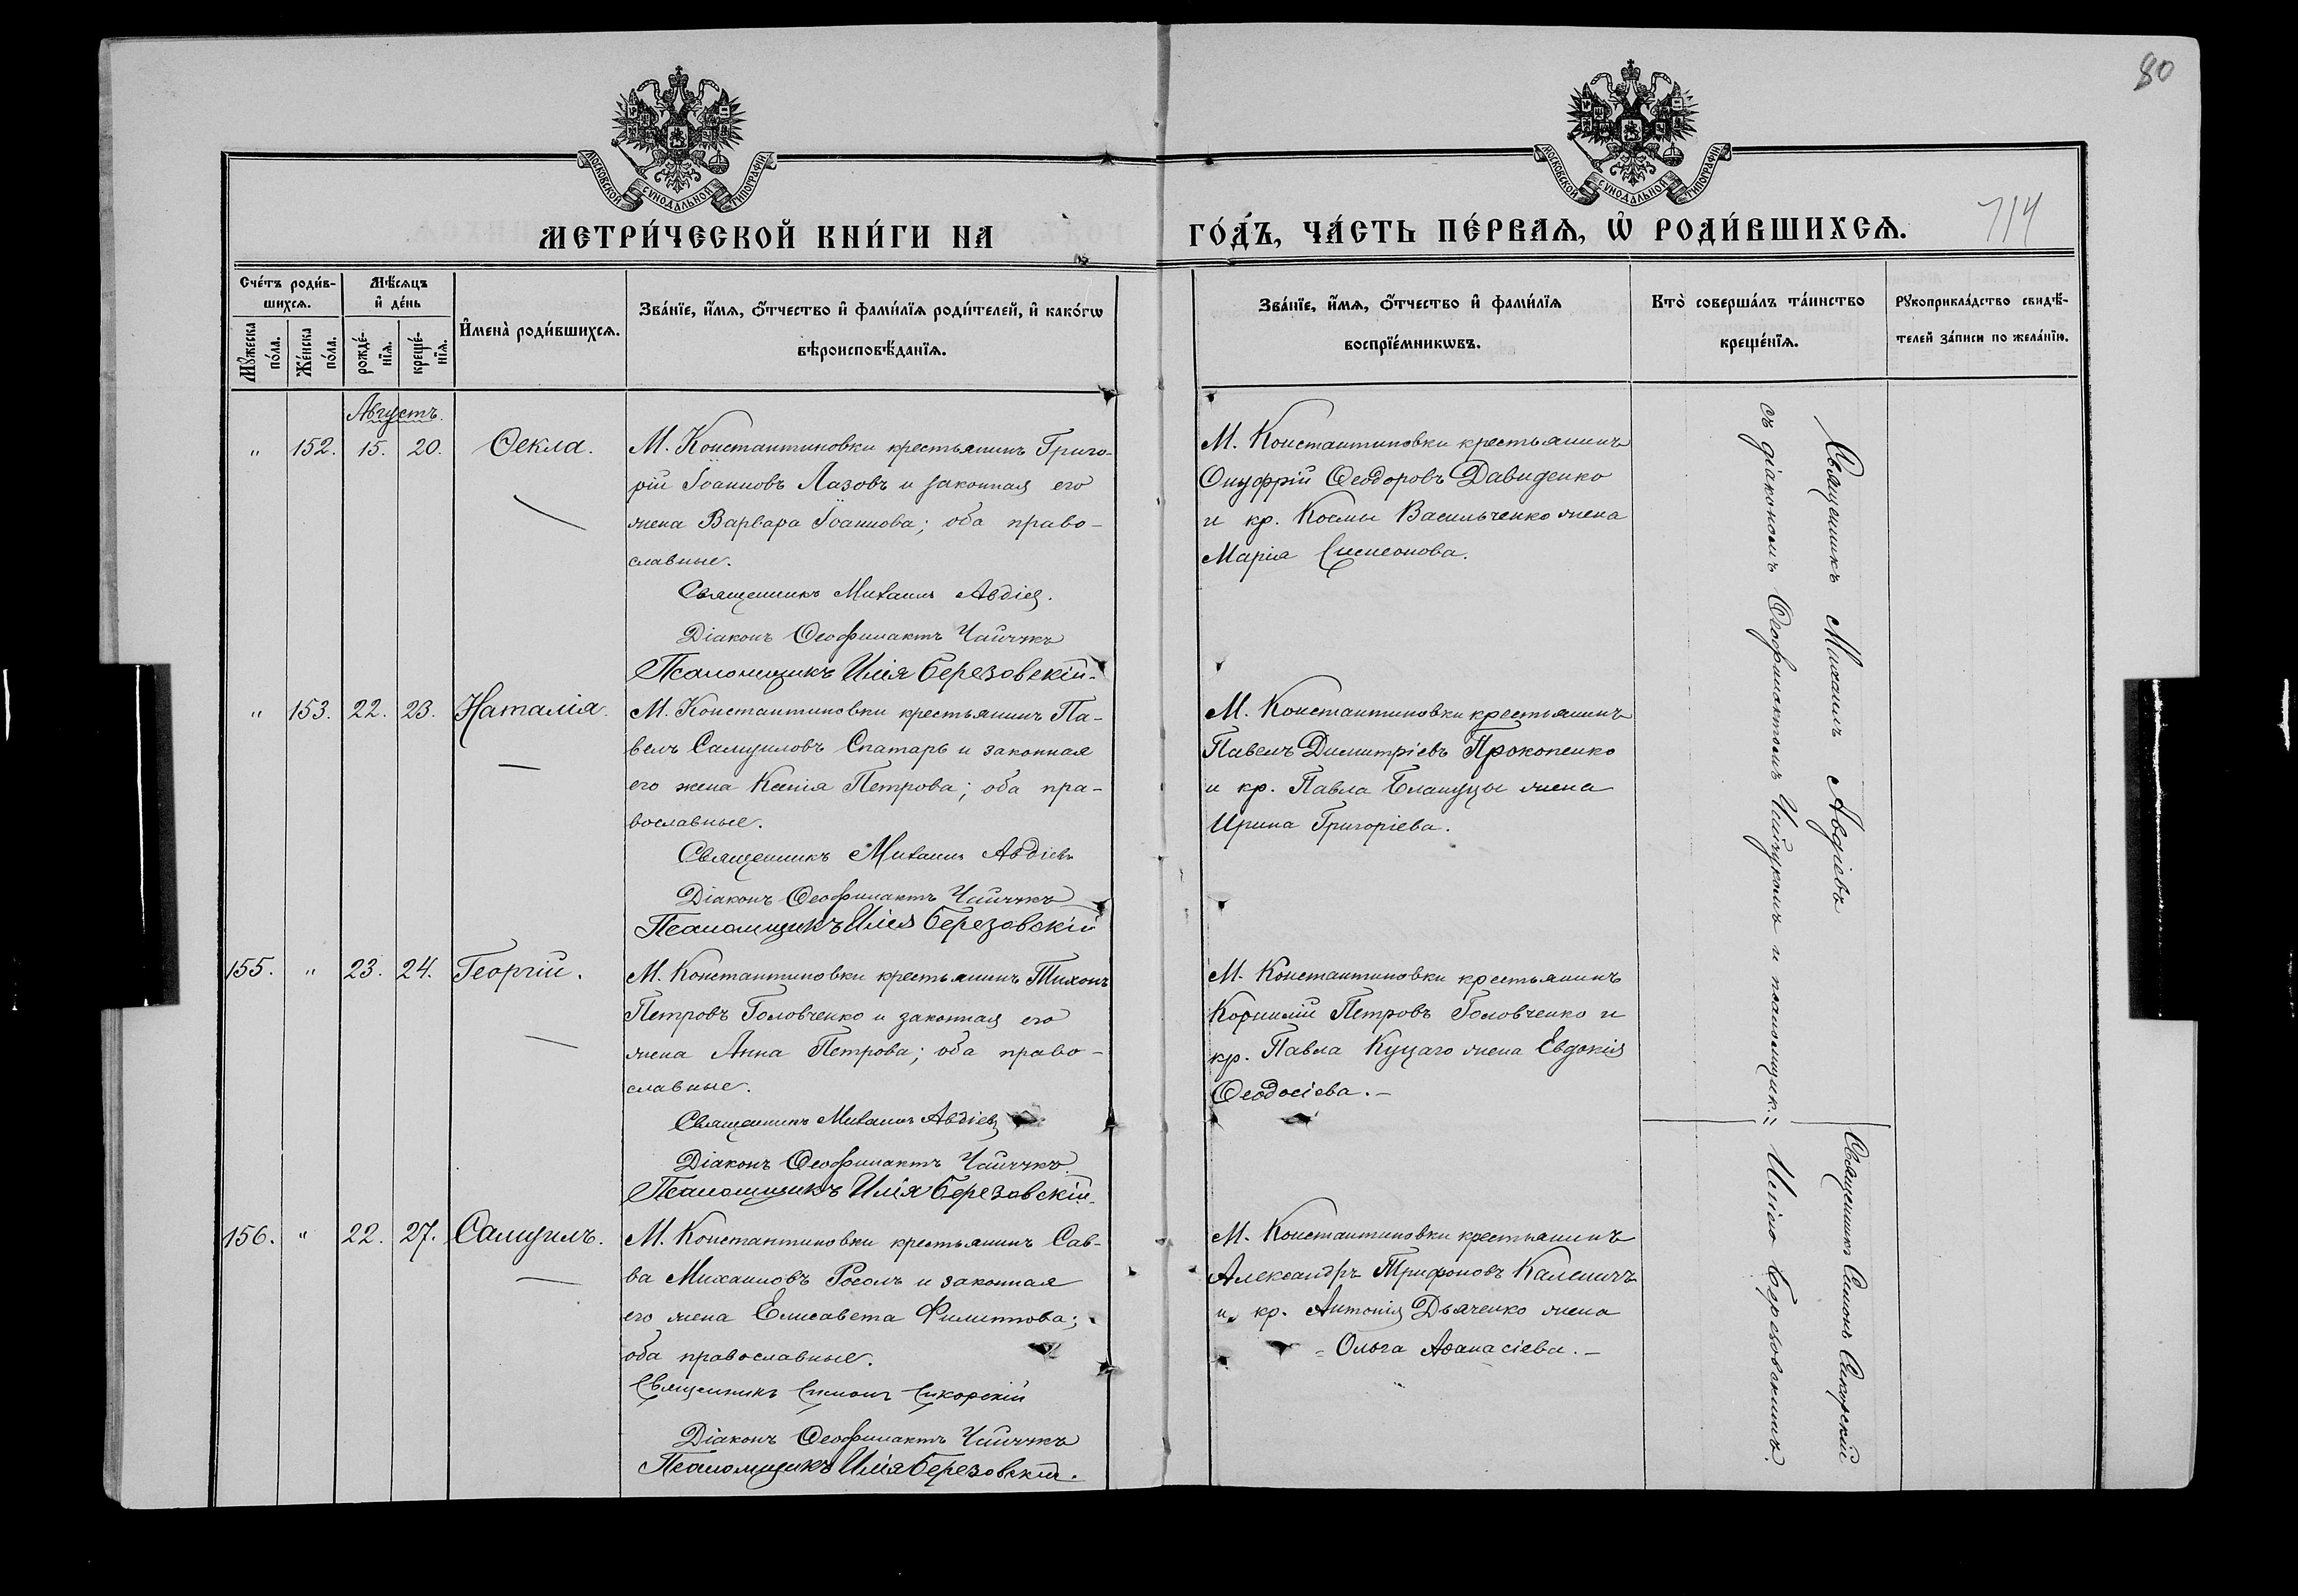 80
МОСКОВСКОЙ СѴНОДАЛЬНОЙ ТИПОГРАФІИ
МОСКОВСКОЙ СѴНОДАЛЬНОЙ ТИПОГРАФІИ
МЕТРИ́ЧЕСКОЙ КНИ́ГИ НА
ГО́ДЪ, ЧА́СТЬ ПЕ́РВАѦ, Ѡ҆ РОДИ́ВШИХСѦ.
714
Сче́тъ роди́в-
шихсѧ.
Мѣ́сѧцъ
и҆ де́нь
Мꙋ́жеска
по́ла.
Же́нска
по́ла.
рожде́-
нїѧ.
креще́-
нїѧ.
И҆мена̀ роди́вшихсѧ.
Зва́нїе, и҆́мѧ, ѻ҆́тчество и҆ фами́лїѧ роди́телей, и҆ како́гѡ
вѣроисповѣ́данїѧ.
Зва́нїе, и҆́мѧ, ѻ҆́тчество и҆ фами́лїѧ
воспрїе́мникѡвъ.
Кто̀ соверша́лъ та́инство
креще́нїѧ.
Рꙋкоприкла́дство свидѣ́-
телей за́писи по жела́нїю.
Августъ.
" 152. 15. 20. Ѳекла.
М. Константиновки крестьянинъ Григо-
рій Іоанновъ Лазовъ и законная его
жена Варвара Іоаннова; оба право-
славные.
Священникъ Михаилъ Авдіев
Діаконъ Ѳеофилактъ Чайчукъ
Псаломщикъ Илія Березовскій.
М. Константиновки крестьянинъ
Онуфрій Ѳеодоровъ Давиденко
и кр. Космы Васильченко жена
Марія Симеонова.
" 153. 22. 23. Наталія.
М. Константиновки крестьянинъ Па-
велъ Самуиловъ Спатарь и законная
его жена Ксенія Петрова; оба пра-
вославные.
Священникъ Михаилъ Авдіевъ
Діаконъ Ѳеофилактъ Чайчукъ
Псаломщикъ Илія Березовскій
М. Константиновки крестьянинъ
Павелъ Димитріевъ Прокопенко
и кр. Павла Блануцы жена
Ирина Григоріева.
155. " 23. 24. Георгій.
М. Константиновки крестьянинъ Тихонъ
Петровъ Головченко и законная его
жена Анна Петрова; оба право-
славные.
Священникъ Михаилъ Авдіевъ
Діаконъ Ѳеофилактъ Чайчукъ
Псаломщикъ Илія Березовскій.
М. Константиновки крестьянинъ
Корнилій Петровъ Головченко и
кр. Павла Куцаго жена Евдокія
Ѳеодосіева.-
156. " 22. 27. Самуилъ.
М. Константиновки крестьянинъ Сав-
ва Михаиловъ Росолъ и законная
его жена Елисавета Филиппова;
оба православные.
Священникъ Симонъ Сикорскій
Діаконъ Ѳеофилактъ Чайчукъ
Псаломщикъ Илія Березовскій.
М. Константиновки крестьянинъ
Александръ Трифоновъ Каленичъ
и кр. Антонія Дьяченко жена
Ольга Аѳанасіева.-
Священникъ Михаилъ Авдіевъ
Священникъ Симонъ Сикорскій
съ діакономъ Ѳеофилактомъ Чайчукомъ и псаломщик.= Иліею Березовскимъ.